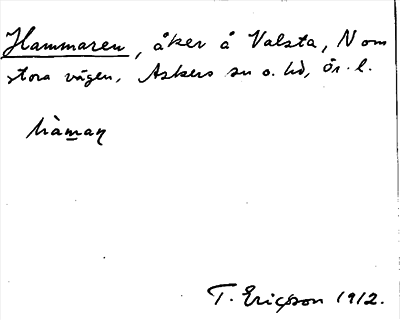 Hammaren, åker å Valsta, N om
stora vägen, Askers sn o. hd, Ör. l.
hàmaṉ
T. Ericsson 1912.